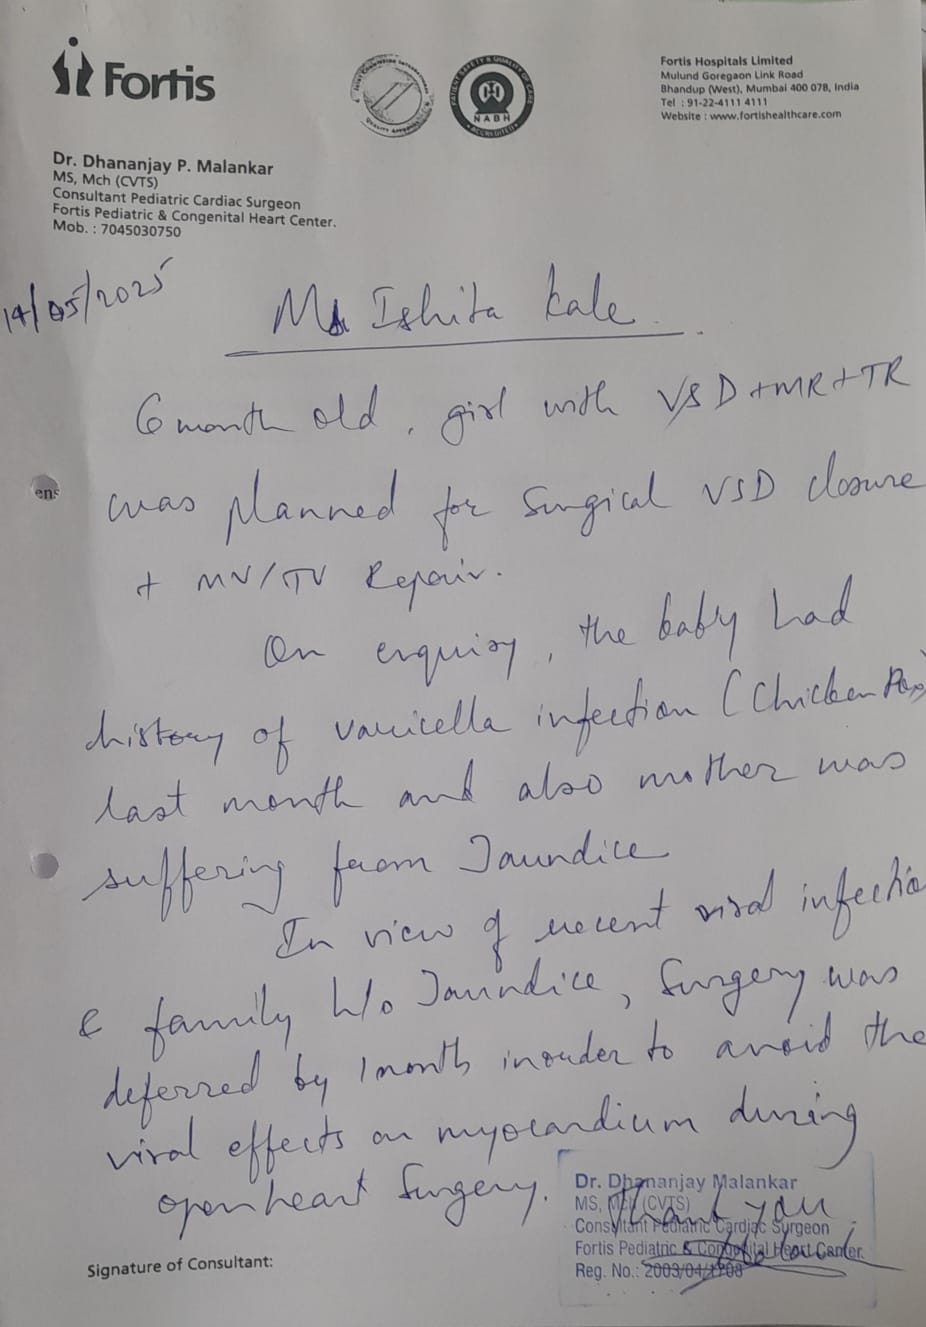 Fortis
NABH
ACCREDITED
Fortis Hospitals Limited
Mulund Goregaon Link Road
Bhandup (West), Mumbai 400 078, India
Tel : 91-22-4111 4111
Website : www.fortishealthcare.com
Dr. Dhananjay P. Malankar
MS, Mch (CVTS)
Consultant Pediatric Cardiac Surgeon
Fortis Pediatric & Congenital Heart Center.
Mob. : 7045030750
14/05/2025
Ms Ishita Kale.
6 month old, girl with VSD+MR+TR
ens
was planned for Surgical VSD closure
+ MV/TV Repair.
On enquiry, the baby had
history of varicella infection (Chicken Pox)
last month and also mother was
suffering from Jaundice
In view of recent viral infectio
& family h/o Jaundice, Surgery was
deferred by 1 month inorder to avoid the
viral effects on myocardium during
open heart Surgery.
Thank you
Dr. Dhananjay Malankar
MS, Mch (CVTS)
Consultant Pediatric Cardiac Surgeon
Fortis Pediatric & Congenital Heart Center.
Reg. No.: 2003/04/1708
Signature of Consultant: